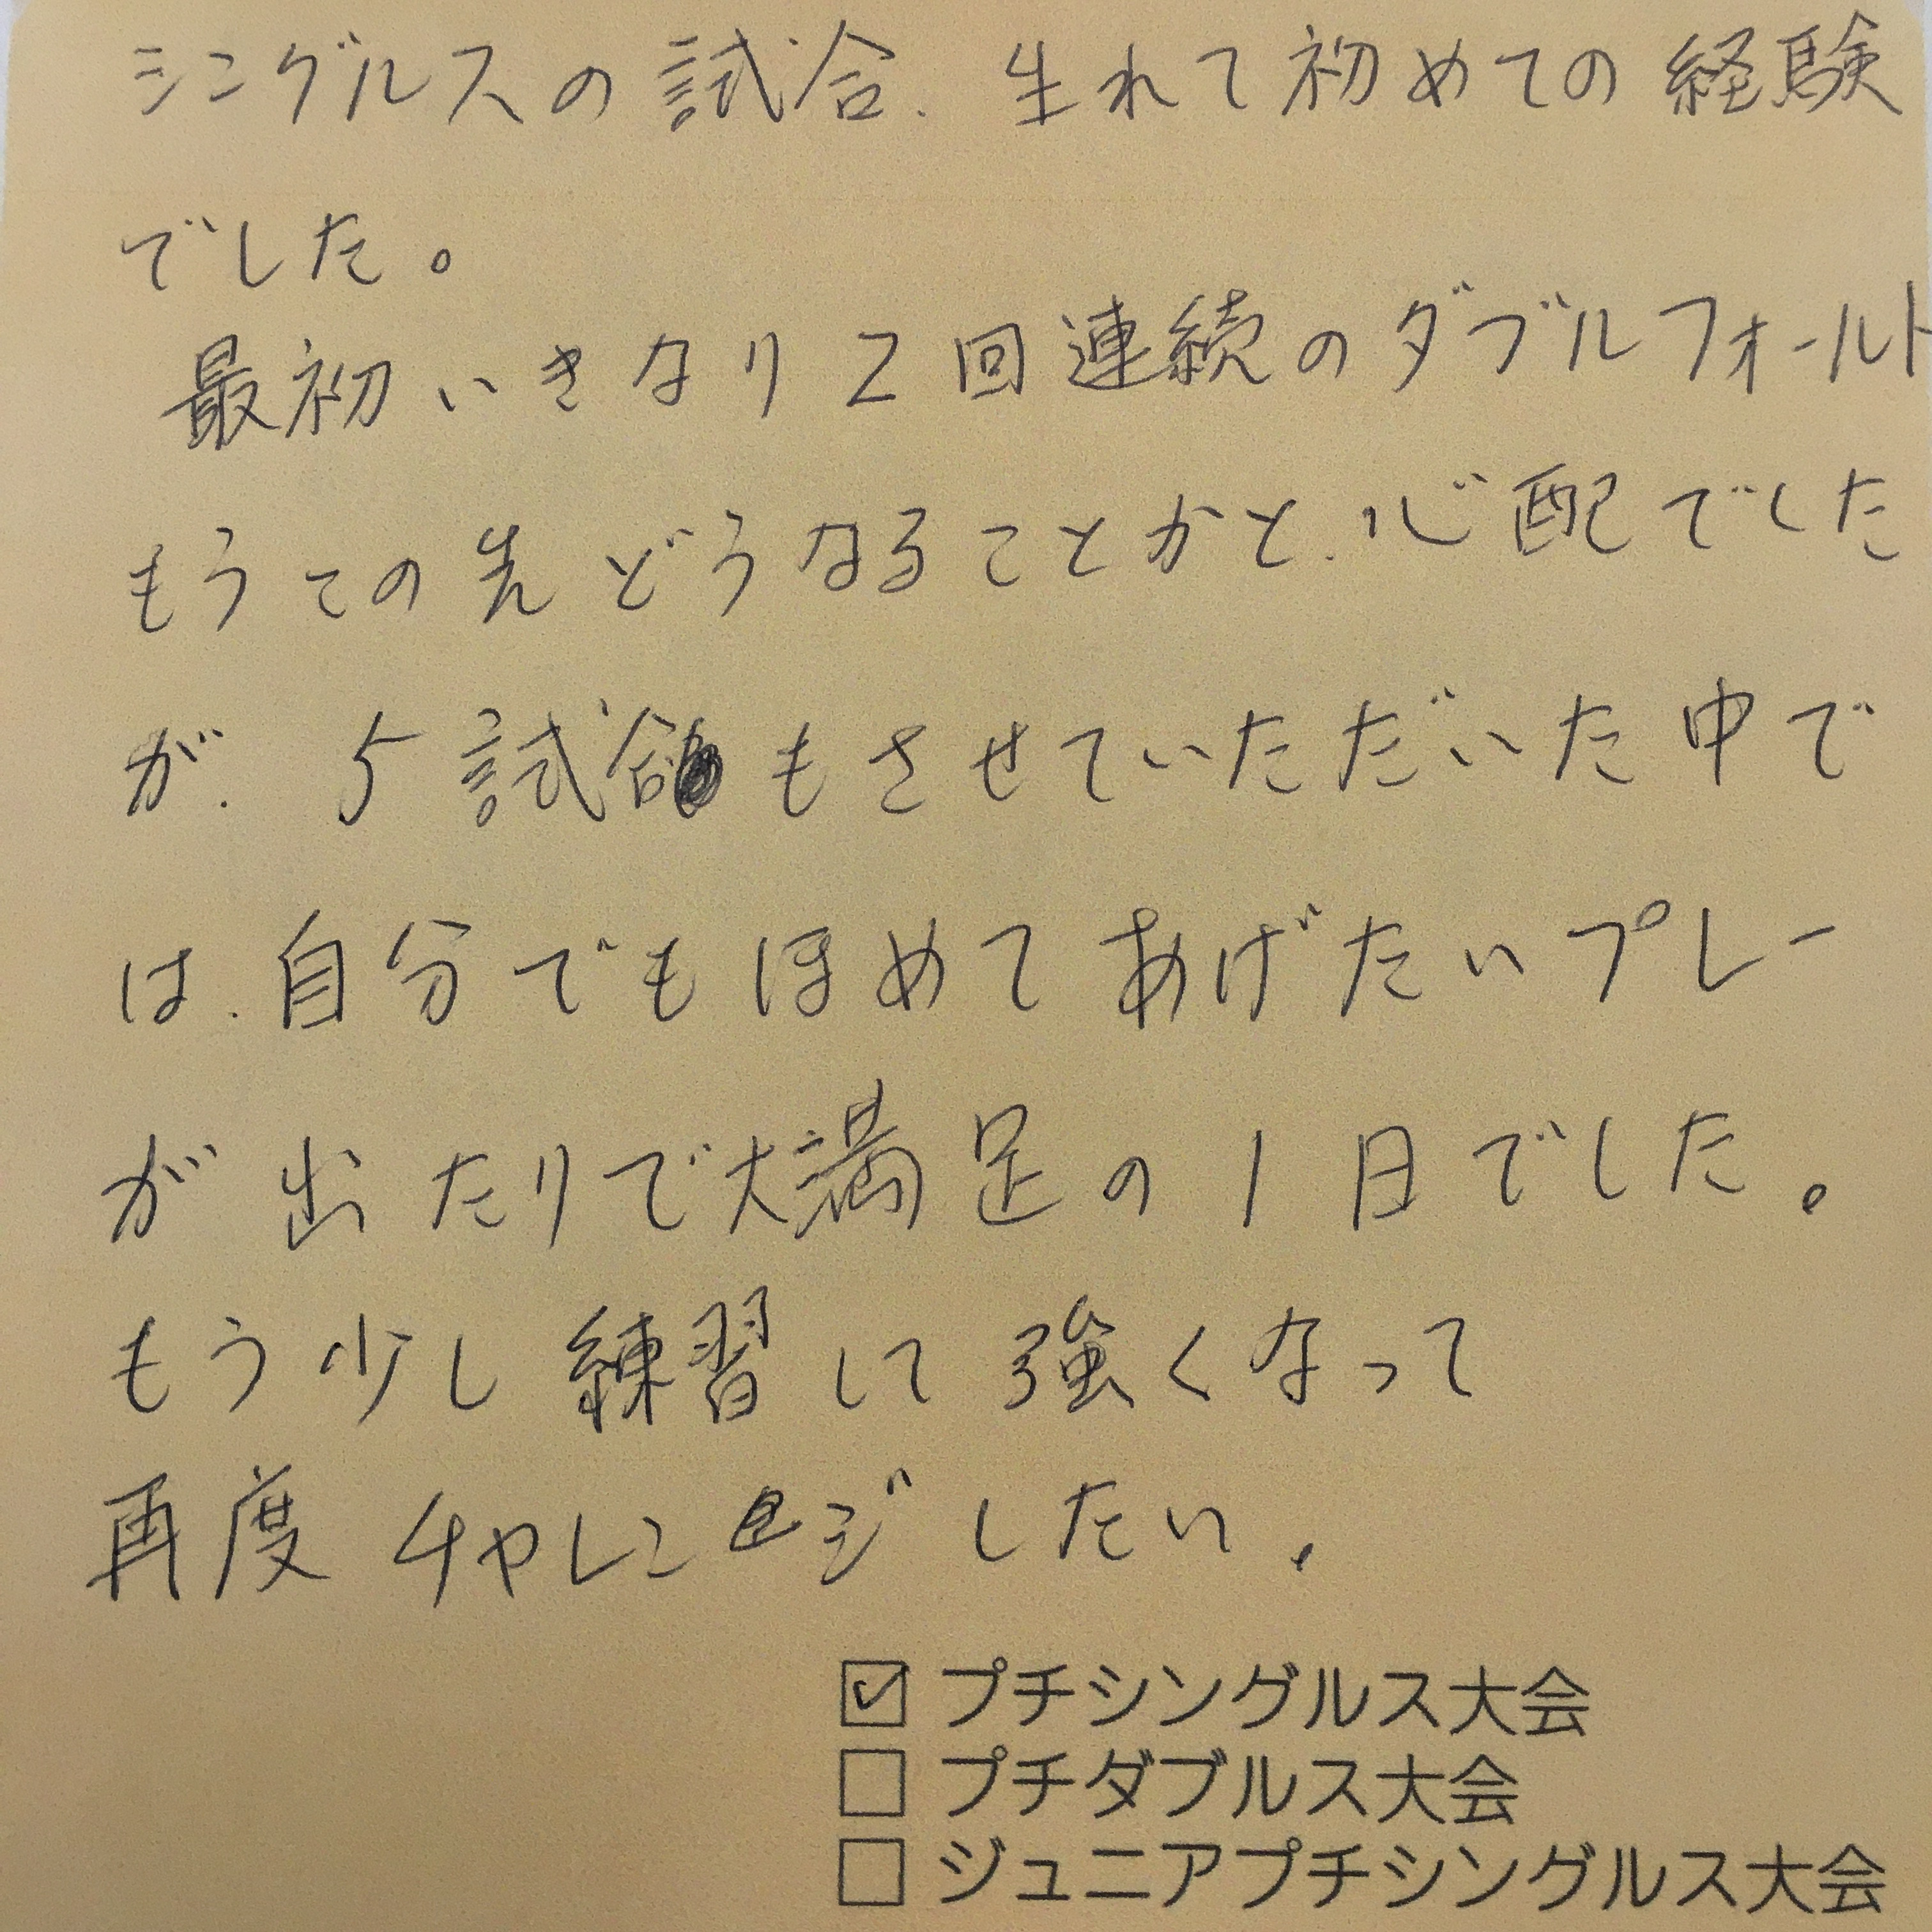 シングルスの試合、生れて初めての経験
でした。
最初いきなり2回連続のダブルフォルト
もうこの先どうなることかと、心配でした
が、5試合もさせていただいた中で
は、自分でもほめてあげたいプレー
が出たりで大満足の1日でした。
もう少し練習して強くなって
再度チャレンジしたい。
☑ プチシングルス大会
☐ プチダブルス大会
☐ ジュニアプチシングルス大会